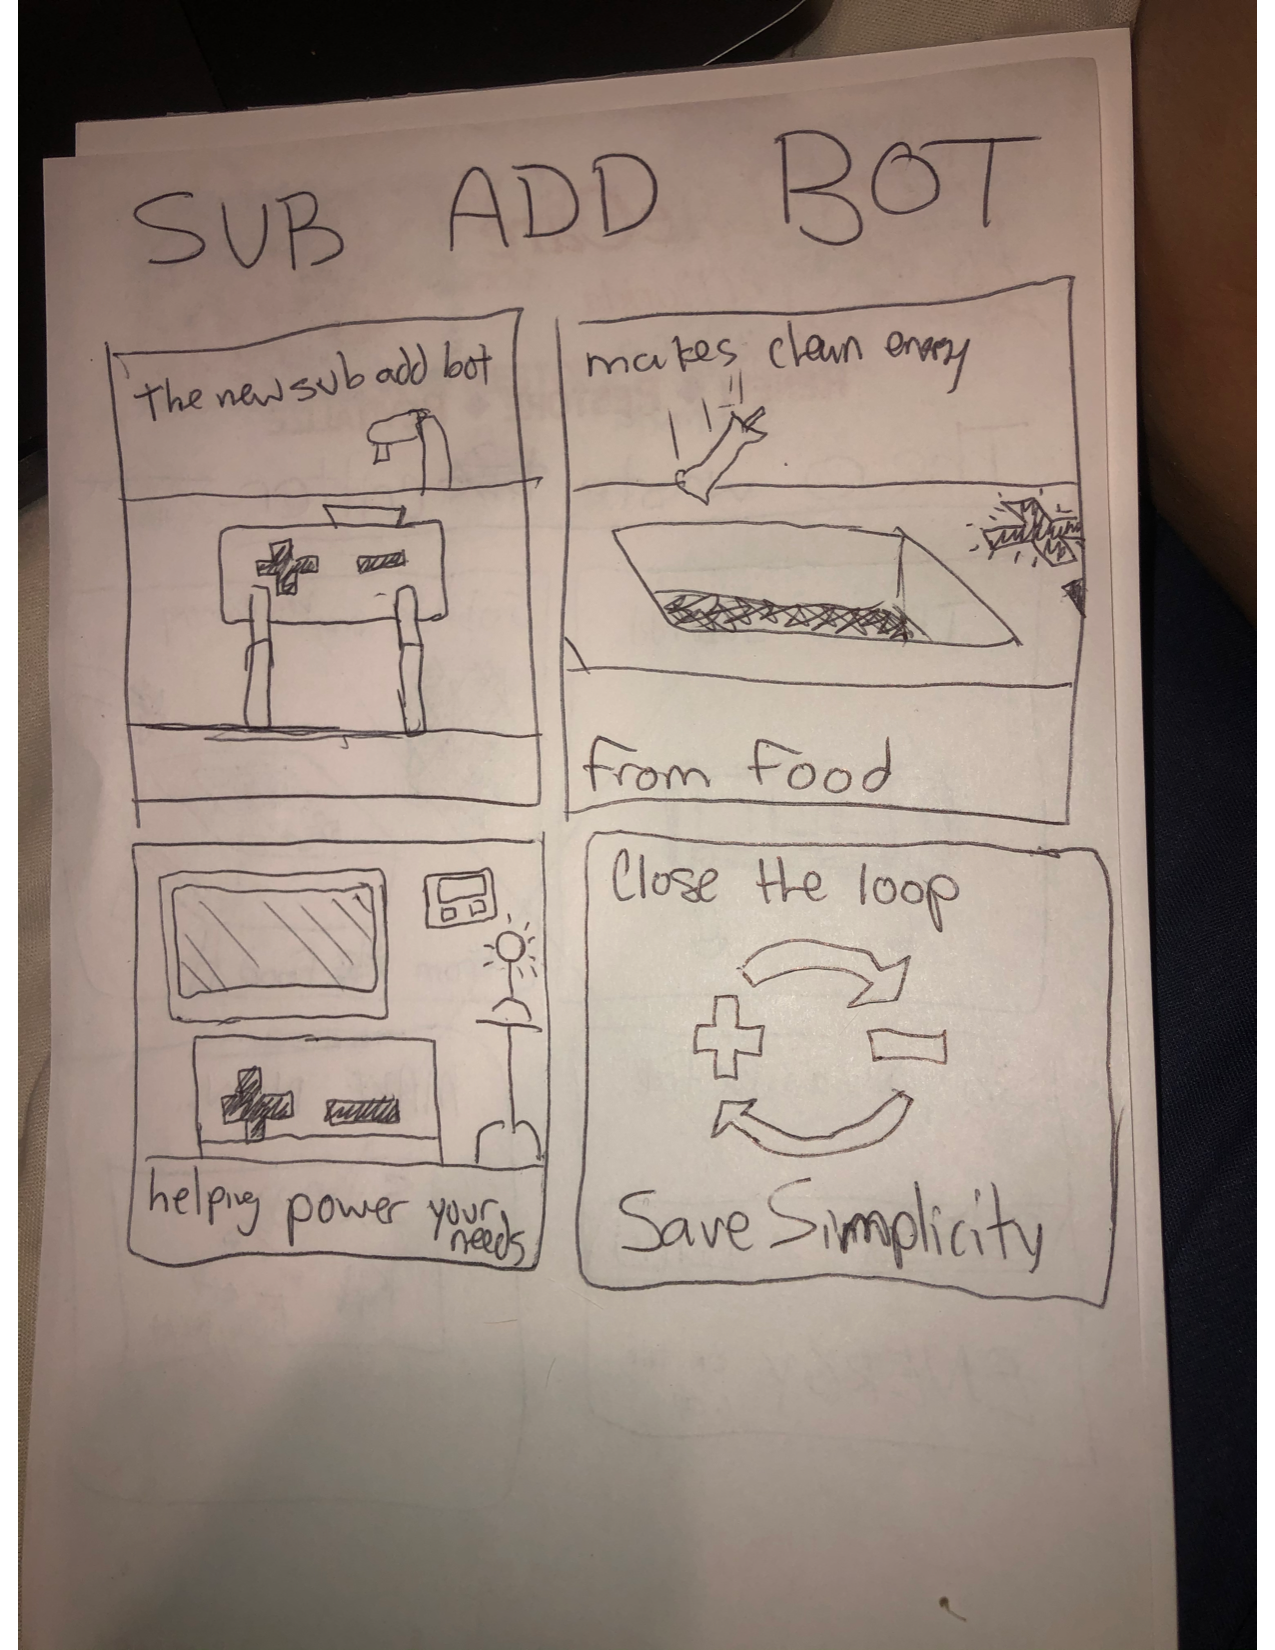 SUB ADD BOT
the new sub add bot
makes clean energy
from food
helping power your
needs
Close the loop
Save Simplicity